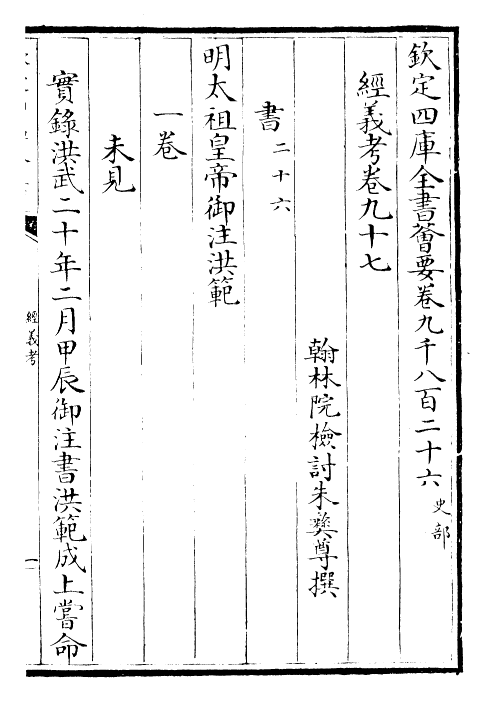 欽定四庫全書薈要卷九千八百二十六 史部
經義考卷九十七
翰林院檢討朱彝尊撰
書 二十六
明太祖皇帝御注洪範
一卷
未見
實錄洪武二十年二月甲辰御注書洪範成上嘗命
經義考
一